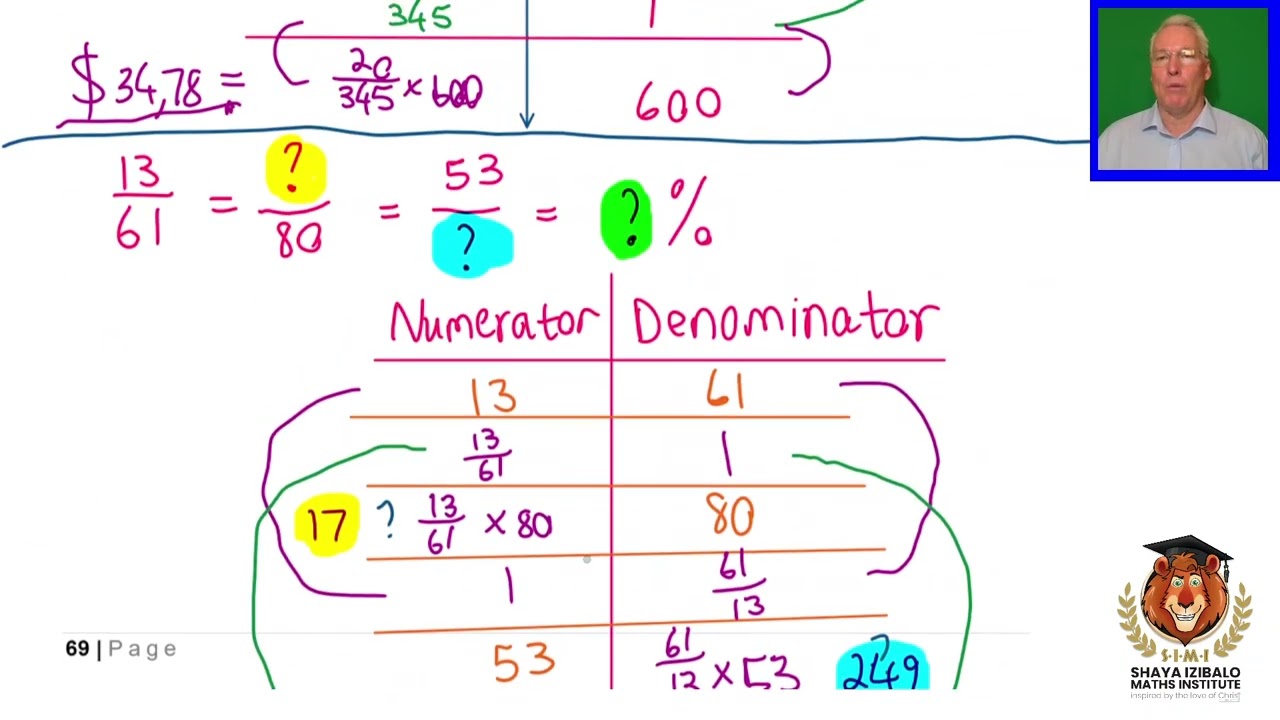 345 | 1
$34,78 = ( 20/345 × 600 | 600 )
13/61 = ?/80 = 53/? = ? %
Numerator | Denominator
13 | 61
13/61 | 1
17 ? 13/61 × 80 | 80
1 | 61/13
53 | 61/13 × 53 ? 249
69 | Page
S·I·M·I
SHAYA IZIBALO
MATHS INSTITUTE
inspired by the love of Christ